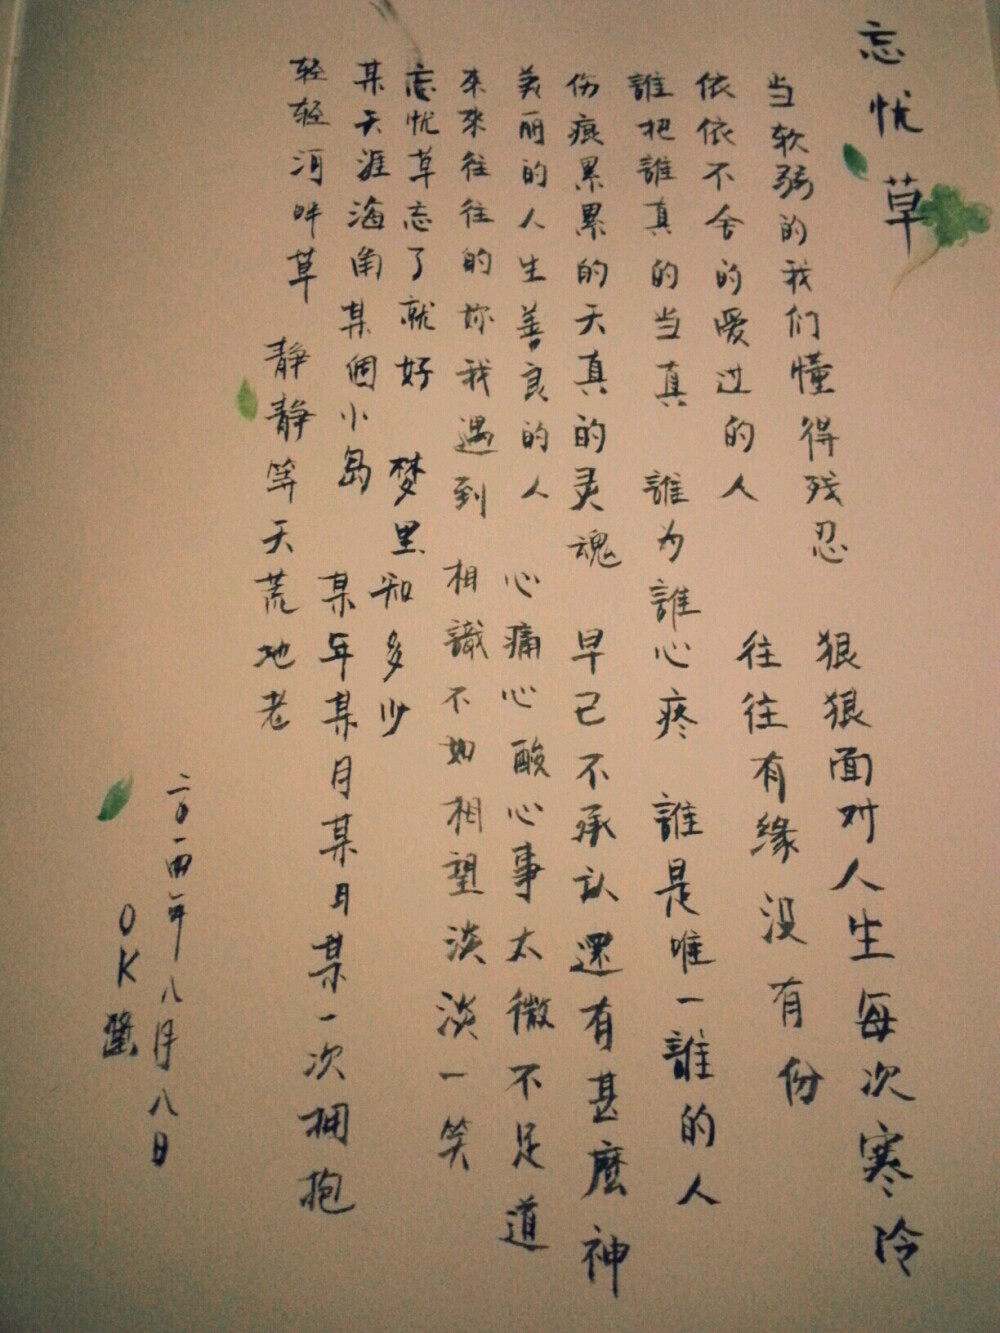 忘忧草
当软弱的我们懂得残忍 狠狠面对人生每次寒冷
依依不舍的爱过的人 往往有缘没有份
誰把誰真的当真 誰为誰心疼 誰是唯一誰的人
伤痕累累的天真的灵魂 早已不承认还有甚麽神
美丽的人生善良的人 心痛心酸心事太微不足道
来来往往的妳我遇到 相識不如相望淡淡一笑
忘忧草忘了就好 梦里知多少
某天涯海角某個小岛 某年某月某日某一次拥抱
轻轻河畔草 静静等天荒地老
二〇一四年八月八日
OK